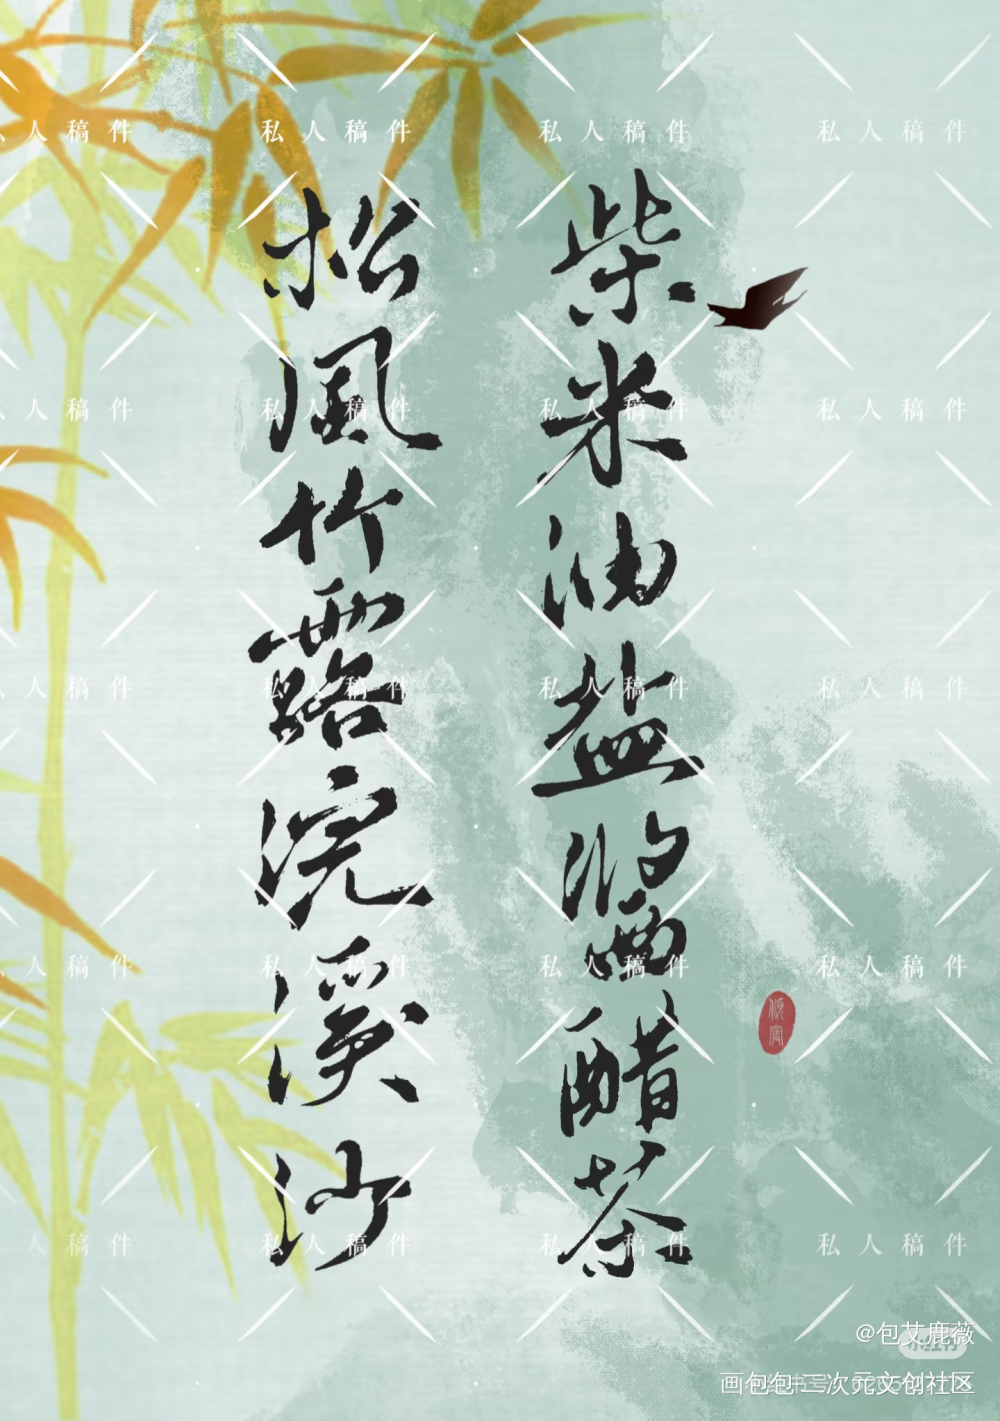 柴米油盐酱醋茶
松風竹露浣溪沙
私人稿件 私人稿件 私人稿件
人稿件 私人稿件 私人稿件 私人稿件
人稿件 私人稿件 私人稿件 私人稿件
人稿件 私人稿件 私人稿件 私人稿件
人稿件 私人稿件 私人稿件 私人稿件
@包艾鹿薇
画包包·二次元文创社区